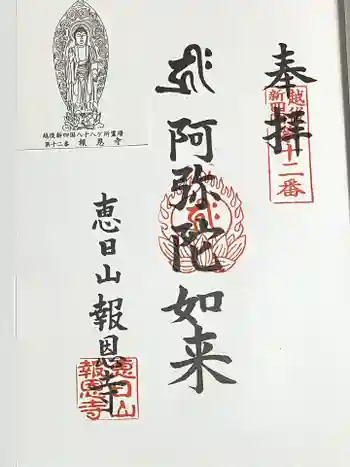 奉拝
越後
新四国
十二番
ह्रीः
阿弥陀如来
恵日山報恩寺
恵日山
報恩寺
越後新四国八十八ケ所霊場
第十二番 報恩寺